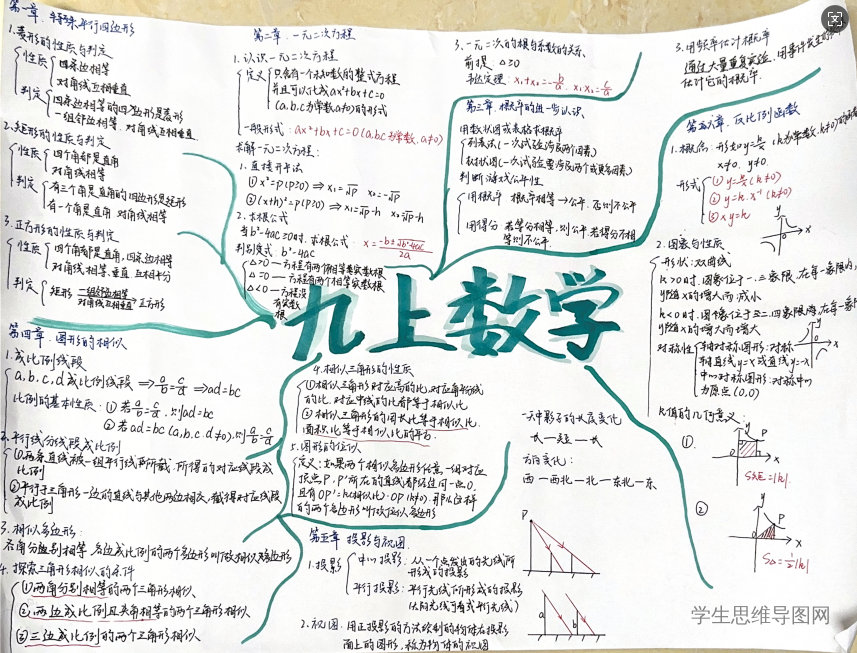 第一章. 特殊平行四边形
1. 菱形的性质与判定
性质 四条边相等
对角线互相垂直
判定 四条边相等的四边形是菱形
一组邻边相等. 对角线互相垂直
2. 矩形的性质与判定
性质 四个角都是直角
对角线相等
判定 有三个角是直角的四边形是矩形
有一个角是直角 对角线相等
3. 正方形的性质与判定
性质 四个角都是直角, 四条边相等
对角线相等, 垂直 且相平分
判定 矩形 一组邻边相等 正方形
对角线互相垂直
第二章. 一元二次方程
1. 认识一元二次方程
定义 只含有一个未知数的整式方程
并且可以化成ax²+bx+c=0
(a.b.c为常数a≠0)的形式
一般形式: ax²+bx+c=0(a.b.c为常数.a≠0)
求解一元二次方程:
1. 直接开平法
① x²=p(p≥0) ⇒ x₁=√p x₂=-√p
② (x+h)²=p(p≥0) ⇒ x₁=√p-h x₂=-√p-h
2. 求根公式
当b²-4ac≥0时. 求根公式 x=-b±√b²-4ac/2a
判别式: b²-4ac
△>0 — 方程有两个不相等实数根
△=0 — 方程有两个相等实数根
△<0 — 方程没有实数根
3. 一元二次的根与系数的关系.
前提. △≥0
韦达定理: x₁+x₂=-b/a. x₁·x₂=c/a
第三章. 概率的进一步认识.
用树状图或表格求概率
列表法(一次试验涉及两个因素)
树状图(一次试验要涉及两个或更多因素)
判断游戏公平性
用概率 概率相等→公平. 否则不公平
用得分 若等分相等, 则公平. 若得分不相等则不公平.
3. 用频率估计概率
通过大量重复实验. 用事件发生的
估计它的概率.
第六章. 反比例函数
1. 概念: 形如y=k/x (k为常数,k≠0)的函数
x≠0. y≠0.
形式 ① y=k/x (k≠0)
② y=k·x⁻¹ (k≠0)
③ xy=k
2. 图象与性质
形状: 双曲线
k>0时. 图象位于一. 三象限. 在每一象限内,
y随x的增大而减小
k<0时. 图像位于二. 四象限内. 在每一象限
y随x的增大而增大
对称性 轴对称图形: 对称
轴直线y=x或直线y=-x
中心对称图形: 对称中心
为原点(0,0)
k值的几何意义:
①. y P x S矩=|k|.
② y P x S△=½|k|
九上数学
第四章. 图形的相似
1. 成比例线段
a.b.c.d成比例线段 ⇒ a/b=c/d ⇒ ad=bc
比例的基本性质: ① 若a/b=c/d. 则ad=bc
② 若ad=bc(a.b.c.d≠0), 则a/b=c/d
2. 平行线分线段成比例
①两条直线被一组平行线所截. 所得的对应线段成
比例
②平行于三角形一边的直线与其他两边相交, 截得对应线段
成比例
3. 相似多边形:
各角分别相等, 各边成比例的两个多边形叫做相似多边形
4. 探索三角形相似的条件
①两角分别相等的两个三角形相似.
②两边成比例且夹角相等的两个三角形相似
③三边成比例的两个三角形相似
4. 相似三角形的性质
①相似三角形对应高的比, 对应角平分线
的比. 对应中线的比都等于相似比
②相似三角形的周长比等于相似比.
面积比等于相似比的平方.
5. 图形的位似
定义: 如果两个相似多边形任意一组对应
顶点P, P'所在的直线都经过同一点O.
且有OP'=k(相似比)·OP(k≠0). 那么这样
的两个多边形叫做位似多边形
第五章. 投影与视图.
1. 投影 中心投影: 从一个点发出的光线所
形成的投影
平行投影: 平行光线所形成的投影
(太阳光线可看成平行光线)
2. 视图. 用正投影的方法绘制的物体在投影
面上的图形, 称为物体的视图
一天中影子的长度变化
长 — 短 — 长
方向变化:
西 — 西北 — 北 — 东北 — 东
P
a b
学生思维导图网